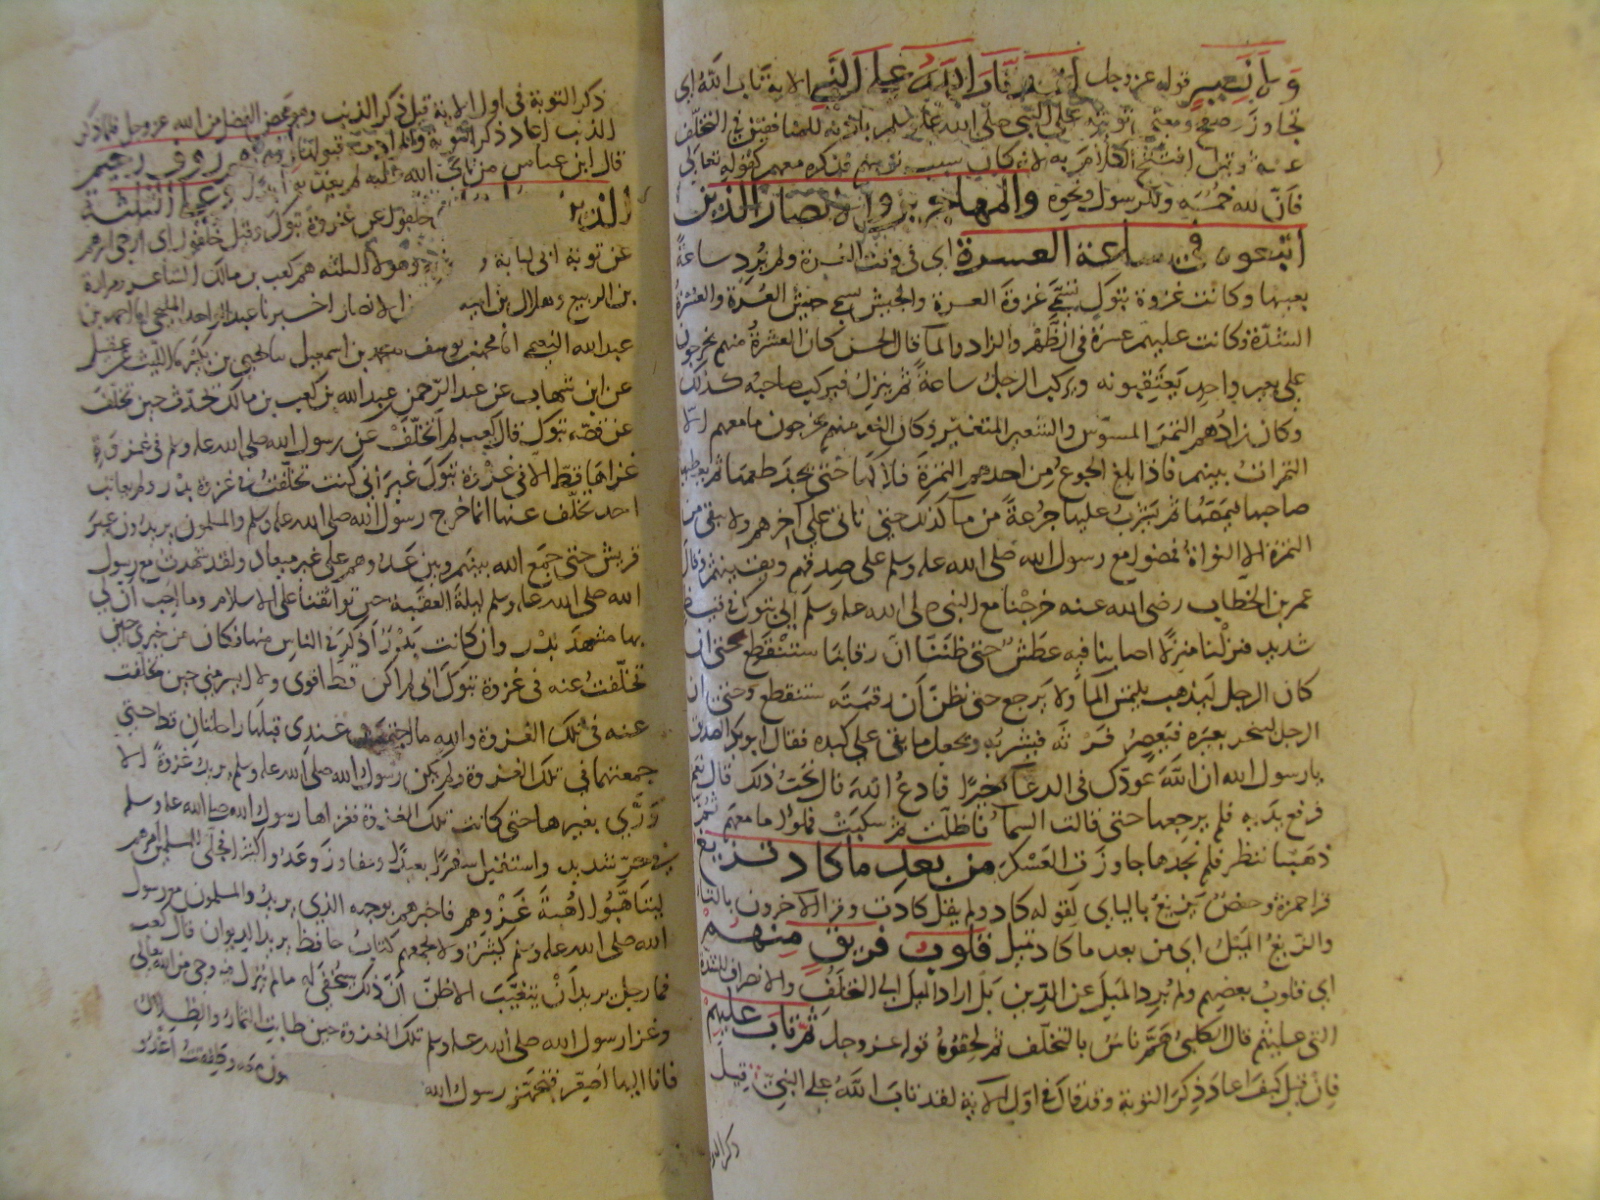 ولا نصير قوله عز وجل لقد تاب الله على النبي الاية تاب الله اي
تجاوز وصفح ومعنى توبته على النبي صلى الله عليه وسلم باذنه للمنافقين في التخلف
عنه وقيل افتتح الكلام به لانه كان سبب توبتهم فذكره معهم كقوله تعالى
فان لله خمسه وللرسول ونحوه والمهاجرين والانصار الذين
اتبعوه في ساعة العسرة اي في وقت العسرة ولم يرد ساعة
بعينها وكانت غزوة تبوك تسمى غزوة العسرة والجيش يسمى جيش العسرة والعسرة
الشدة وكانت عليهم عسرة في الظهر والزاد والما قال الحسن كان العشرة منهم يخرجون
على بعير واحد يعتقبونه ويركب الرجل ساعة ثم ينزل فيركب صاحبه كذلك
وكان زادهم التمر المسوس والشعير المتغير وكان النفر منهم يخرجون ما معهم الا
التمرات بينهم فاذا بلغ الجوع من احدهم التمرة فلاكها حتى يجد طعمها ثم يعطيها
صاحبه فيمصها ثم يشرب عليها جرعة من ما كذلك حتى تاتي على اخرهم ولا يبقى من
التمرة الا النواة فمضوا مع رسول الله صلى الله عليه وسلم على صدقهم ويقينهم وقال
عمر بن الخطاب رضي الله عنه خرجنا مع النبي صلى الله عليه وسلم الى تبوك في قيظ
شديد فنزلنا منزلا اصابنا فيه عطش حتى ظننا ان رقابنا ستنقطع حتى ان
كان الرجل ليذهب يلتمس الما ولا يرجع حتى نظن ان رقبته ستنقطع وحتى ان
الرجل لينحر بعيره فيعصر فرثه فيشربه ويجعل ما بقي على كبده فقال ابو بكر الصديق
يا رسول الله ان الله عودك في الدعا خيرا فادع الله قال تحب ذلك قال نعم
فرفع يديه فلم يرجعها حتى قالت السما فاظلت ثم سكبت فملوا ما معهم ثم
ذهبنا ننظر فلم نجدها جاوزت العسكر من بعد ما كاد تزيغ
قرا حمزة وحفص يزيغ بالياي لقوله كاد ولم يقل كادت وقرا الاخرون بالتا
والزيغ الميل اي من بعد ما كاد تميل قلوب فريق منهم
اي قلوب بعضهم ولم يرد الميل عن الدين بل اراد الميل الى التخلف والانصراف للشدة
التي عليهم قال الكلبي هم ناس بالتخلف ثم لحقوه قوله عز وجل ثم تاب عليهم
فان قيل كيف اعاد ذكر التوبة وقد قال في اول الاية لقد تاب الله على النبي قيل
ذكر التوبة في اول الاية قبل ذكر الذنب وهو محض الفضل من الله عز وجل فلما ذكر
الذنب اعاد ذكر التوبة والمراد منه قبولها انه بهم رؤف رحيم
قال ابن عباس من تاب الله عليه لم يعذبه ابدا وعلى الثلثة
الذين خلفوا عن غزوة تبوك وقيل خلفوا اي ارجي امرهم
عن توبة ابي لبابة وهولا الثلثة هم كعب بن مالك الشاعر ومرارة
بن الربيع وهلال بن امية الانصار اخبرنا عبد الواحد المليحي انا احمد بن
عبد الله النعيمي انا محمد بن يوسف محمد بن اسمعيل نا يحيى بن بكير نا الليث عن عقيل
عن ابن شهاب عن عبد الرحمن بن عبد الله بن كعب بن مالك يحدث حين تخلف
عن قصة تبوك قال كعب لم اتخلف عن رسول الله صلى الله عليه وسلم في غزوة
غزاها قط الا في غزوة تبوك غير اني كنت تخلفت في غزوة بدر ولم يعاتب
احد تخلف عنها انما خرج رسول الله صلى الله عليه وسلم والمسلمون يريدون عير
قريش حتى جمع الله بينهم وبين عدوهم على غير ميعاد ولقد شهدت مع رسول
الله صلى الله عليه وسلم ليلة العقبة حين تواثقنا على الاسلام وما احب ان لي
بها مشهد بدر وان كانت بدر اذكر في الناس منها فكان من خبري حين
تخلفت عنه في غزوة تبوك اني لم اكن قط اقوى ولا ايسر مني حين تخلفت
عنه في تلك الغزوة والله ما اجتمعت عندي قبلها راحلتان قط حتى
جمعتهما في تلك الغزوة ولم يكن رسول الله صلى الله عليه وسلم يريد غزوة الا
ورى بغيرها حتى كانت تلك الغزوة فغزاها رسول الله صلى الله عليه وسلم
في حر شديد واستقبل سفرا بعيدا ومفاوز وعدوا كثيرا فجلى للمسلمين امرهم
ليتاهبوا اهبة غزوهم فاخبرهم بوجهه الذي يريد والمسلمون مع رسول
الله صلى الله عليه وسلم كثير ولا يجمعهم كتاب حافظ يريد الديوان قال كعب
فما رجل يريد ان يتغيب الا ظن ان ذلك سيخفى له ما لم ينزل فيه وحي من الله تعالى
وغزا رسول الله صلى الله عليه وسلم تلك الغزوة حين طابت الثمار والظلال
فانا اليها اصعر فتجهز رسول الله ون معه وطفقت اغدو
ذكر الذ